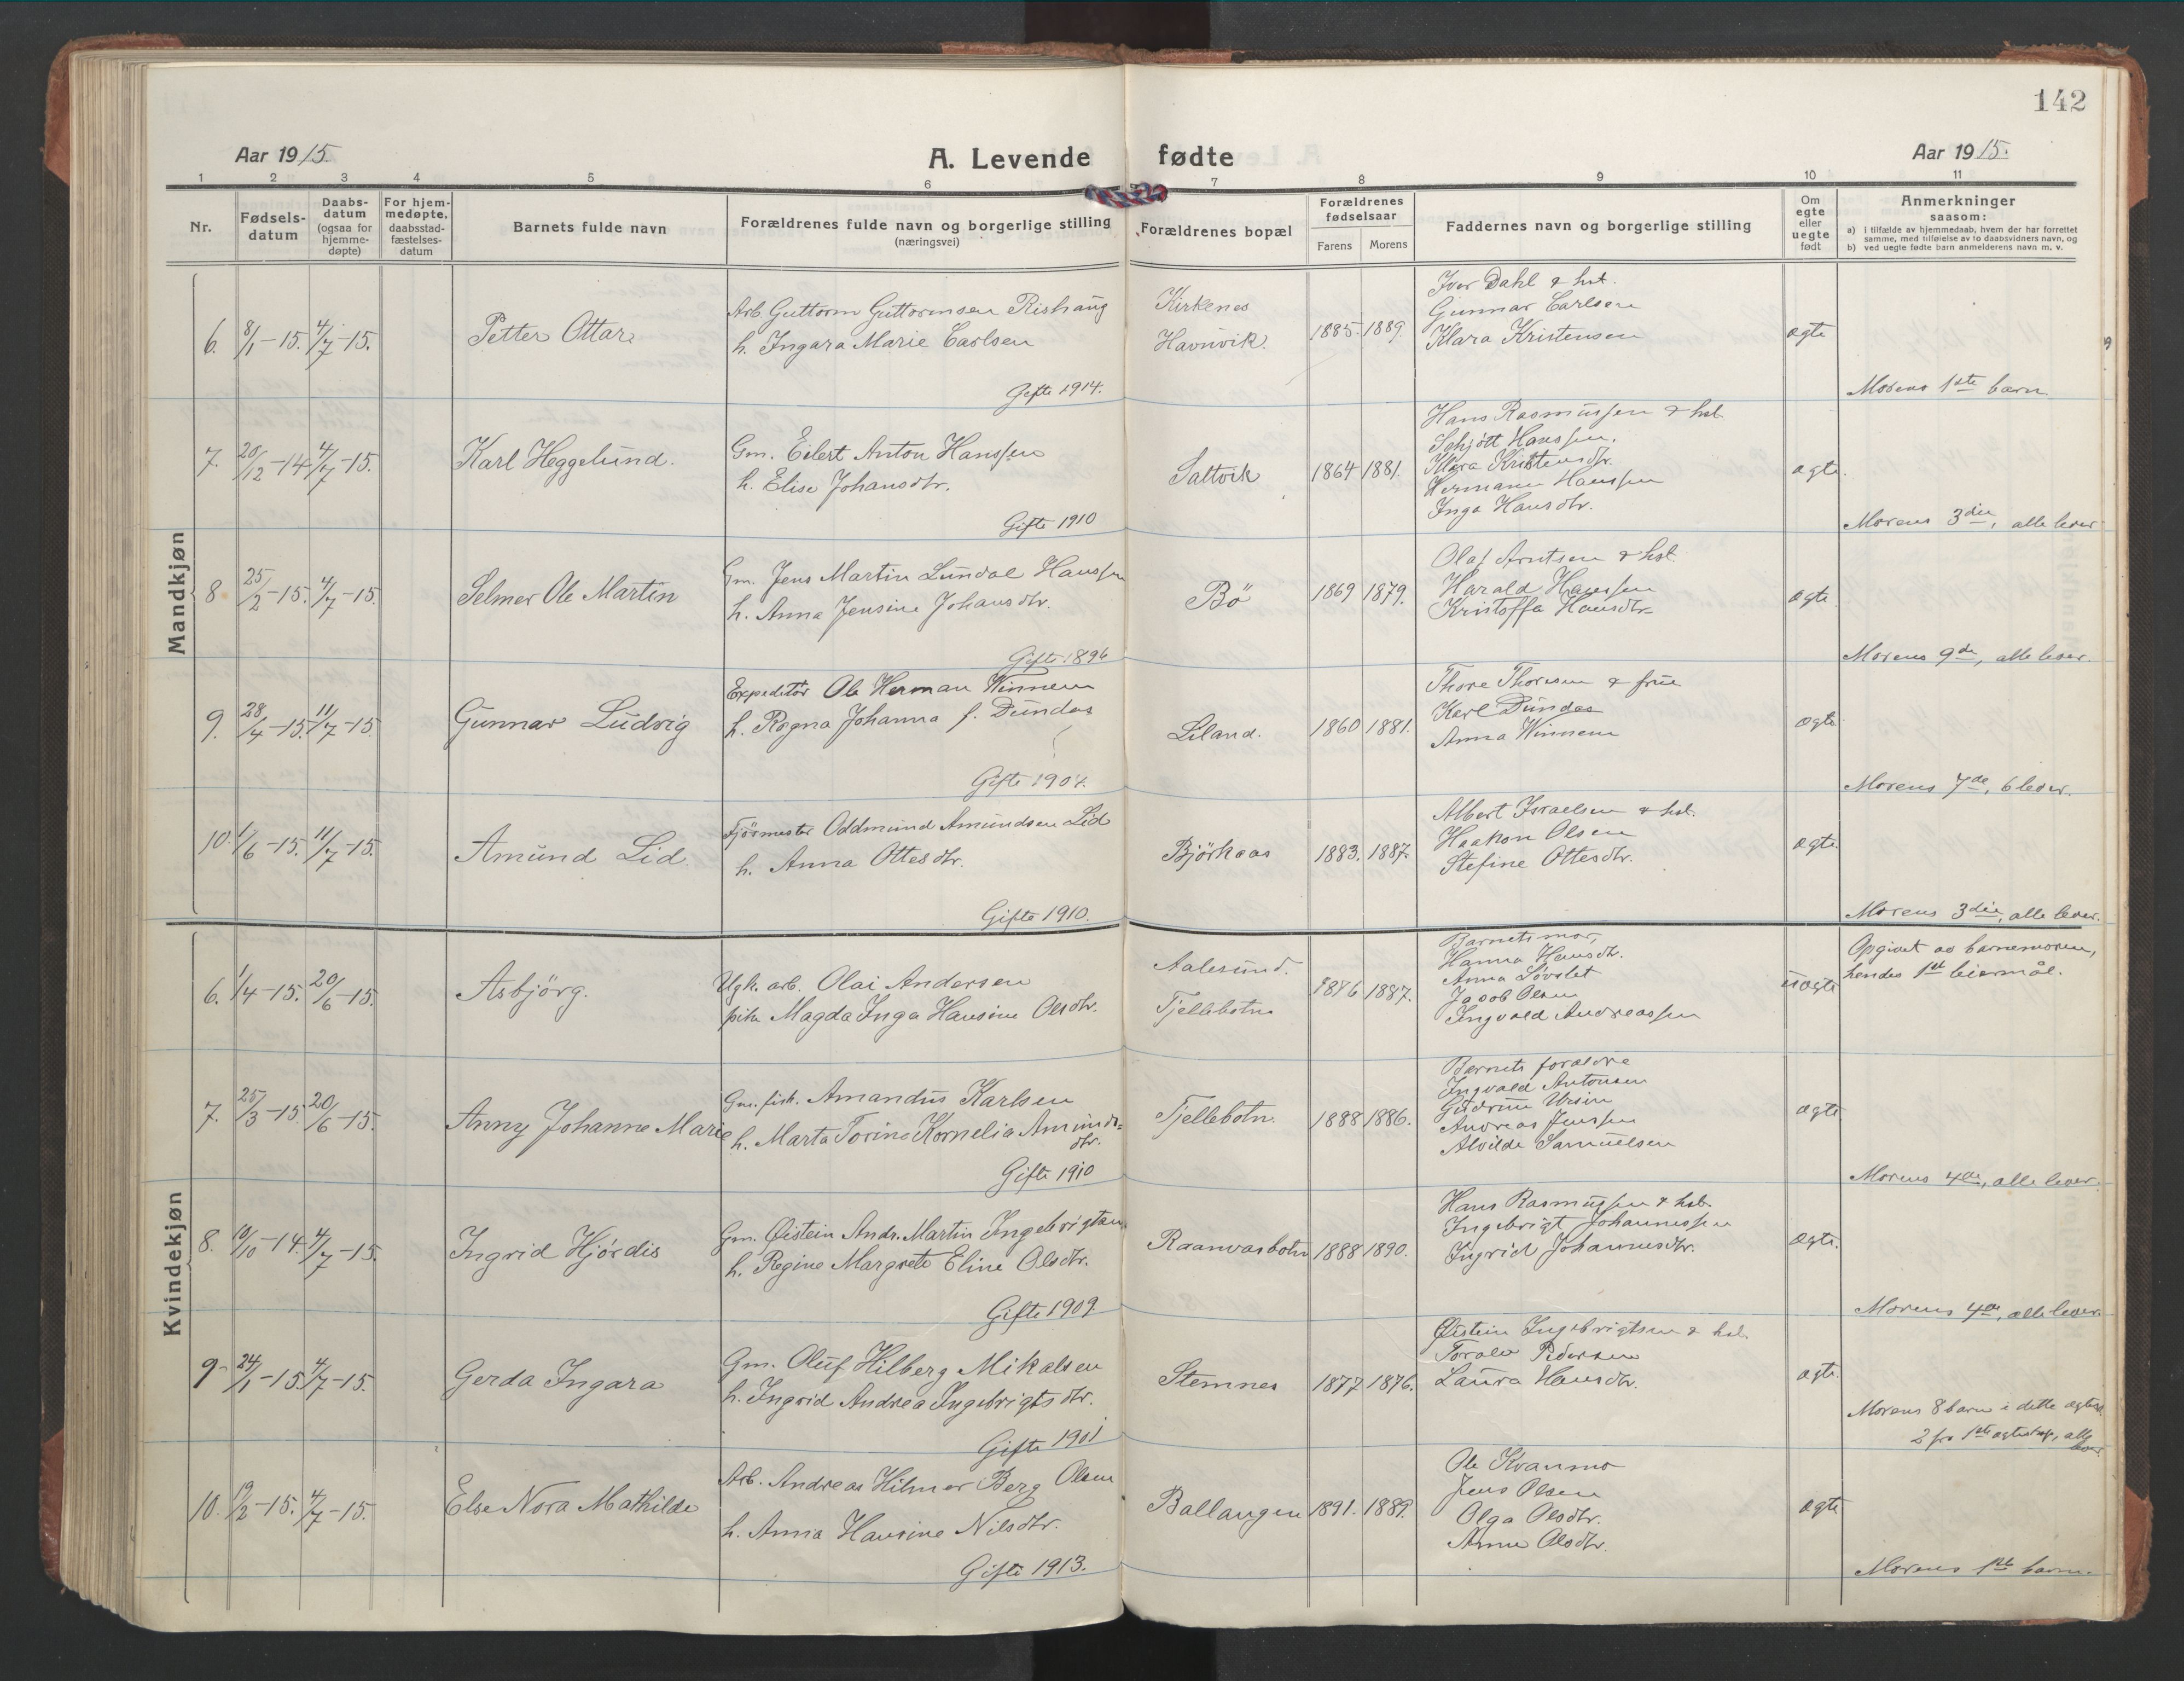 142
Aar 1915.
A. Levende fødte
Aar 1915.
1 2 3 4 5 6 7 8 9 10 11
Nr.
Fødsels-
datum
Daabs-
datum
(ogsaa for
hjemme-
døpte)
For hjem-
medøpte,
daabsstad-
fæstelses-
datum
Barnets fulde navn
Forældrenes fulde navn og borgerlige stilling
(næringsvei)
Forældrenes bopæl
Forældrenes
fødselsaar
Farens Morens
Faddernes navn og borgerlige stilling
Om
egte
eller
uegte
født
Anmerkninger
saasom:
a) i tilfælde av hjemmedaab, hvem der har forrettet
samme, med tilføielse av to daabsvidners navn, og
b) ved uegte fødte barn anmelderens navn m. v.
Mandkjøn
6. 8/1-15. 4/7-15. Petter Ottar
Arb. Guttorm Guttormsen Rishaug
h. Ingara Marie Carlsen
Gifte 1914.
Kirkenes
Havnvik.
1885. 1889.
Iver Dahl & hst.
Gunnar Carlsen
Klara Kristensen
ægte
Morens 1ste barn
7. 20/12-14 4/7-15. Karl Heggelund.
Gm. Eilert Anton Hanssen
h. Elise Johansdtr.
Gifte 1910
Saltvik
1864 1881.
Hans Rasmussen & hst.
Schjött Hanssen.
Klara Kristensdtr.
Hermann Hanssen
Inga Hansdtr.
ægte.
Morens 3die, alle lever
8 25/2-15. 4/7-15. Selmer Ole Martin
Gm. Jens Martin Lundal Hanssen
h. Anna Jensine Johansdtr.
Gifte 1896
Bö
1869 1879.
Olaf Arntsen & hst.
Harald Hanssen
Kristoffa Hansdtr
ægte
Morens 9de, alle lever.
9. 28/4-15. 11/7-15. Gunnar Ludvig
Expeditör Ole Herman Winnem
h. Ragna Johanna f. Dundas
Gifte 1904.
Liland.
1860 1881.
Thore Thoresen & frue
Karl Dundas
Anna Winnem
ægte
Morens 7de, 6 lever.
10. 1/6-15. 11/7-15. Amund Lid.
Fjösmester Oddmund Amundsen Lid
h. Anna Ottesdtr.
Gifte 1910.
Björkaas
1883. 1887.
Albert Israelsen & hst.
Haakon Olsen
Stefine Ottesdtr.
ægte
Morens 3die, alle lever.
Kvindekjøn
6. 1/4-15. 20/6-15. Asbjörg.
Ugk. arb. Olai Andersen
pike Magda Inga Hansine Olsdtr.
Aalesund.
Tjellebotn
1886 1887.
Barnets mor,
Hanna Hansdtr.
Anna Løvslet
Jacob Olsen
Ingvald Andreassen
uægte
Opgivet av barnemoren,
hendes 1ste leiermål.
7. 25/3-15 20/6-15. Anny Johanne Marie
Gm. fisk. Amandus Karlsen
h. Marta Torine Kornelia Amunds-
dtr.
Gifte 1910
Tjellebotn.
1888 1886.
Barnets forældre
Ingvald Antonsen
Gudrun Ursin
Andreas Jenssen
Alvilde Samuelsen
ægte
Morens 4de, alle lever.
8. 10/10-14. 4/7-15. Ingrid Hjördis
Gm. Øistein Andr. Martin Ingebrigtsen
h. Regine Margrete Eline Olsdtr.
Gifte 1909.
Raanvasbotn
1888 1890.
Hans Rasmussen & hst.
Ingebrigt Johannessen
Ingrid Johannesdtr.
ægte.
Morens 4de, alle lever.
9. 24/1-15. 4/7-15. Gerda Ingara
Gm. Oluf Hilberg Mikalsen
h. Ingrid Andrea Ingebrigtsdtr.
Gifte 1901
Stemnes
1877 1876.
Øistein Ingebrigtsen & hst.
Toralv Pedersen
Laura Hansdtr.
ægte.
Morens 8 barn i dette ægtesk.
2 fra 1ste ægteskap, alle
lever
10. 19/2-15. 4/7-15. Else Nora Mathilde
Arb. Andreas Hilmer Berg Olsen
h. Anna Hansine Nilsdtr.
Gifte 1913.
Ballangen
1891. 1889.
Ole Kvanmo
Jens Olsen
Olga Olsdtr.
Anne Olsdtr.
ægte
Morens 1ste barn.